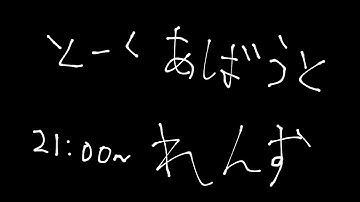 とーく あばうと
21:00~ れんず